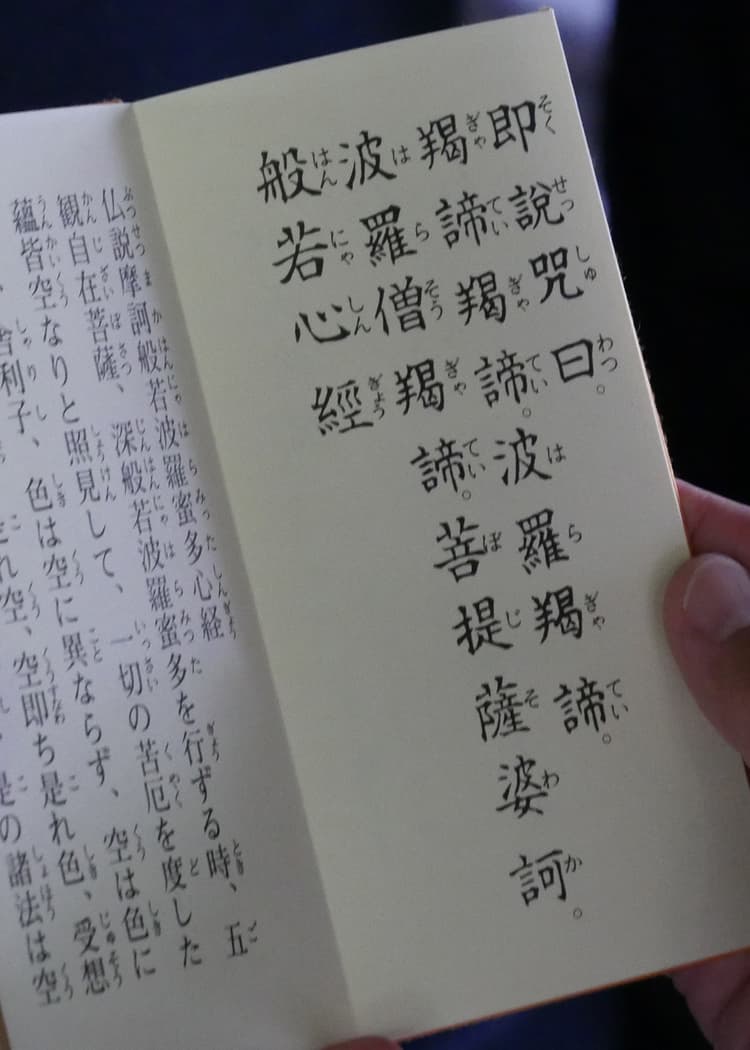 即說咒曰。
羯諦羯諦。波羅羯諦。
波羅僧羯諦。菩提薩婆訶。
般若心經
仏説摩訶般若波羅蜜多心経
観自在菩薩、深般若波羅蜜多を行ずる時、五
蘊皆空なりと照見して、一切の苦厄を度した
舎利子、色は空に異ならず、空は色に
れ空、空即ち是れ色、受想
是の諸法は空